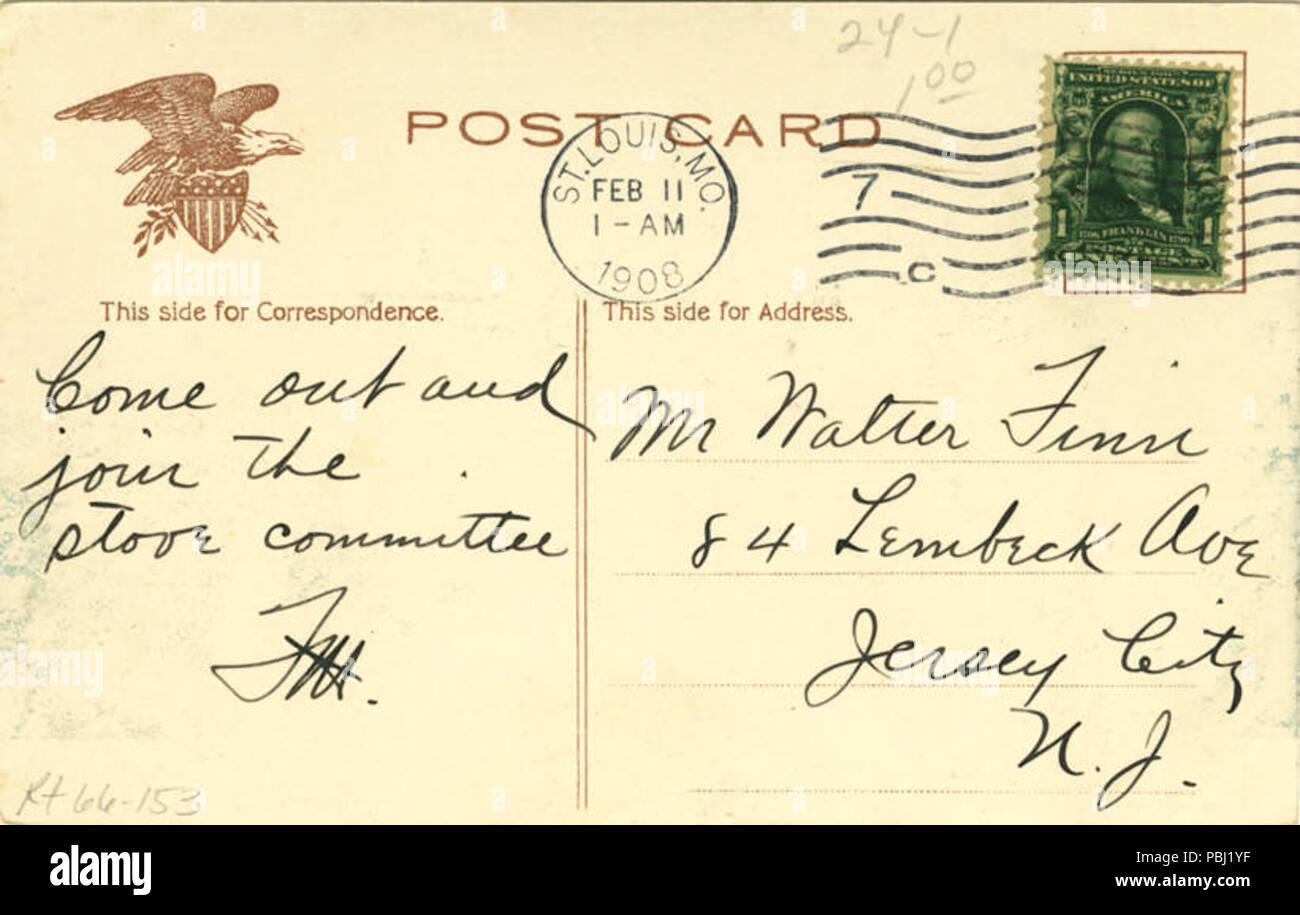 24-1
1 00
POST CARD
ST. LOUIS, MO.
FEB 11
1-AM
1908
7
C
UNITED STATES OF
AMERICA
1 1706 FRANKLIN 1790 1
This side for Correspondence.
Come out and
join the
stove committee
This side for Address.
Mr Walter Finn
84 Lembeck Ave
Jersey City
N. J.
66-153
alamy
alamy
Image ID: PBJ1YF
www.alamy.com